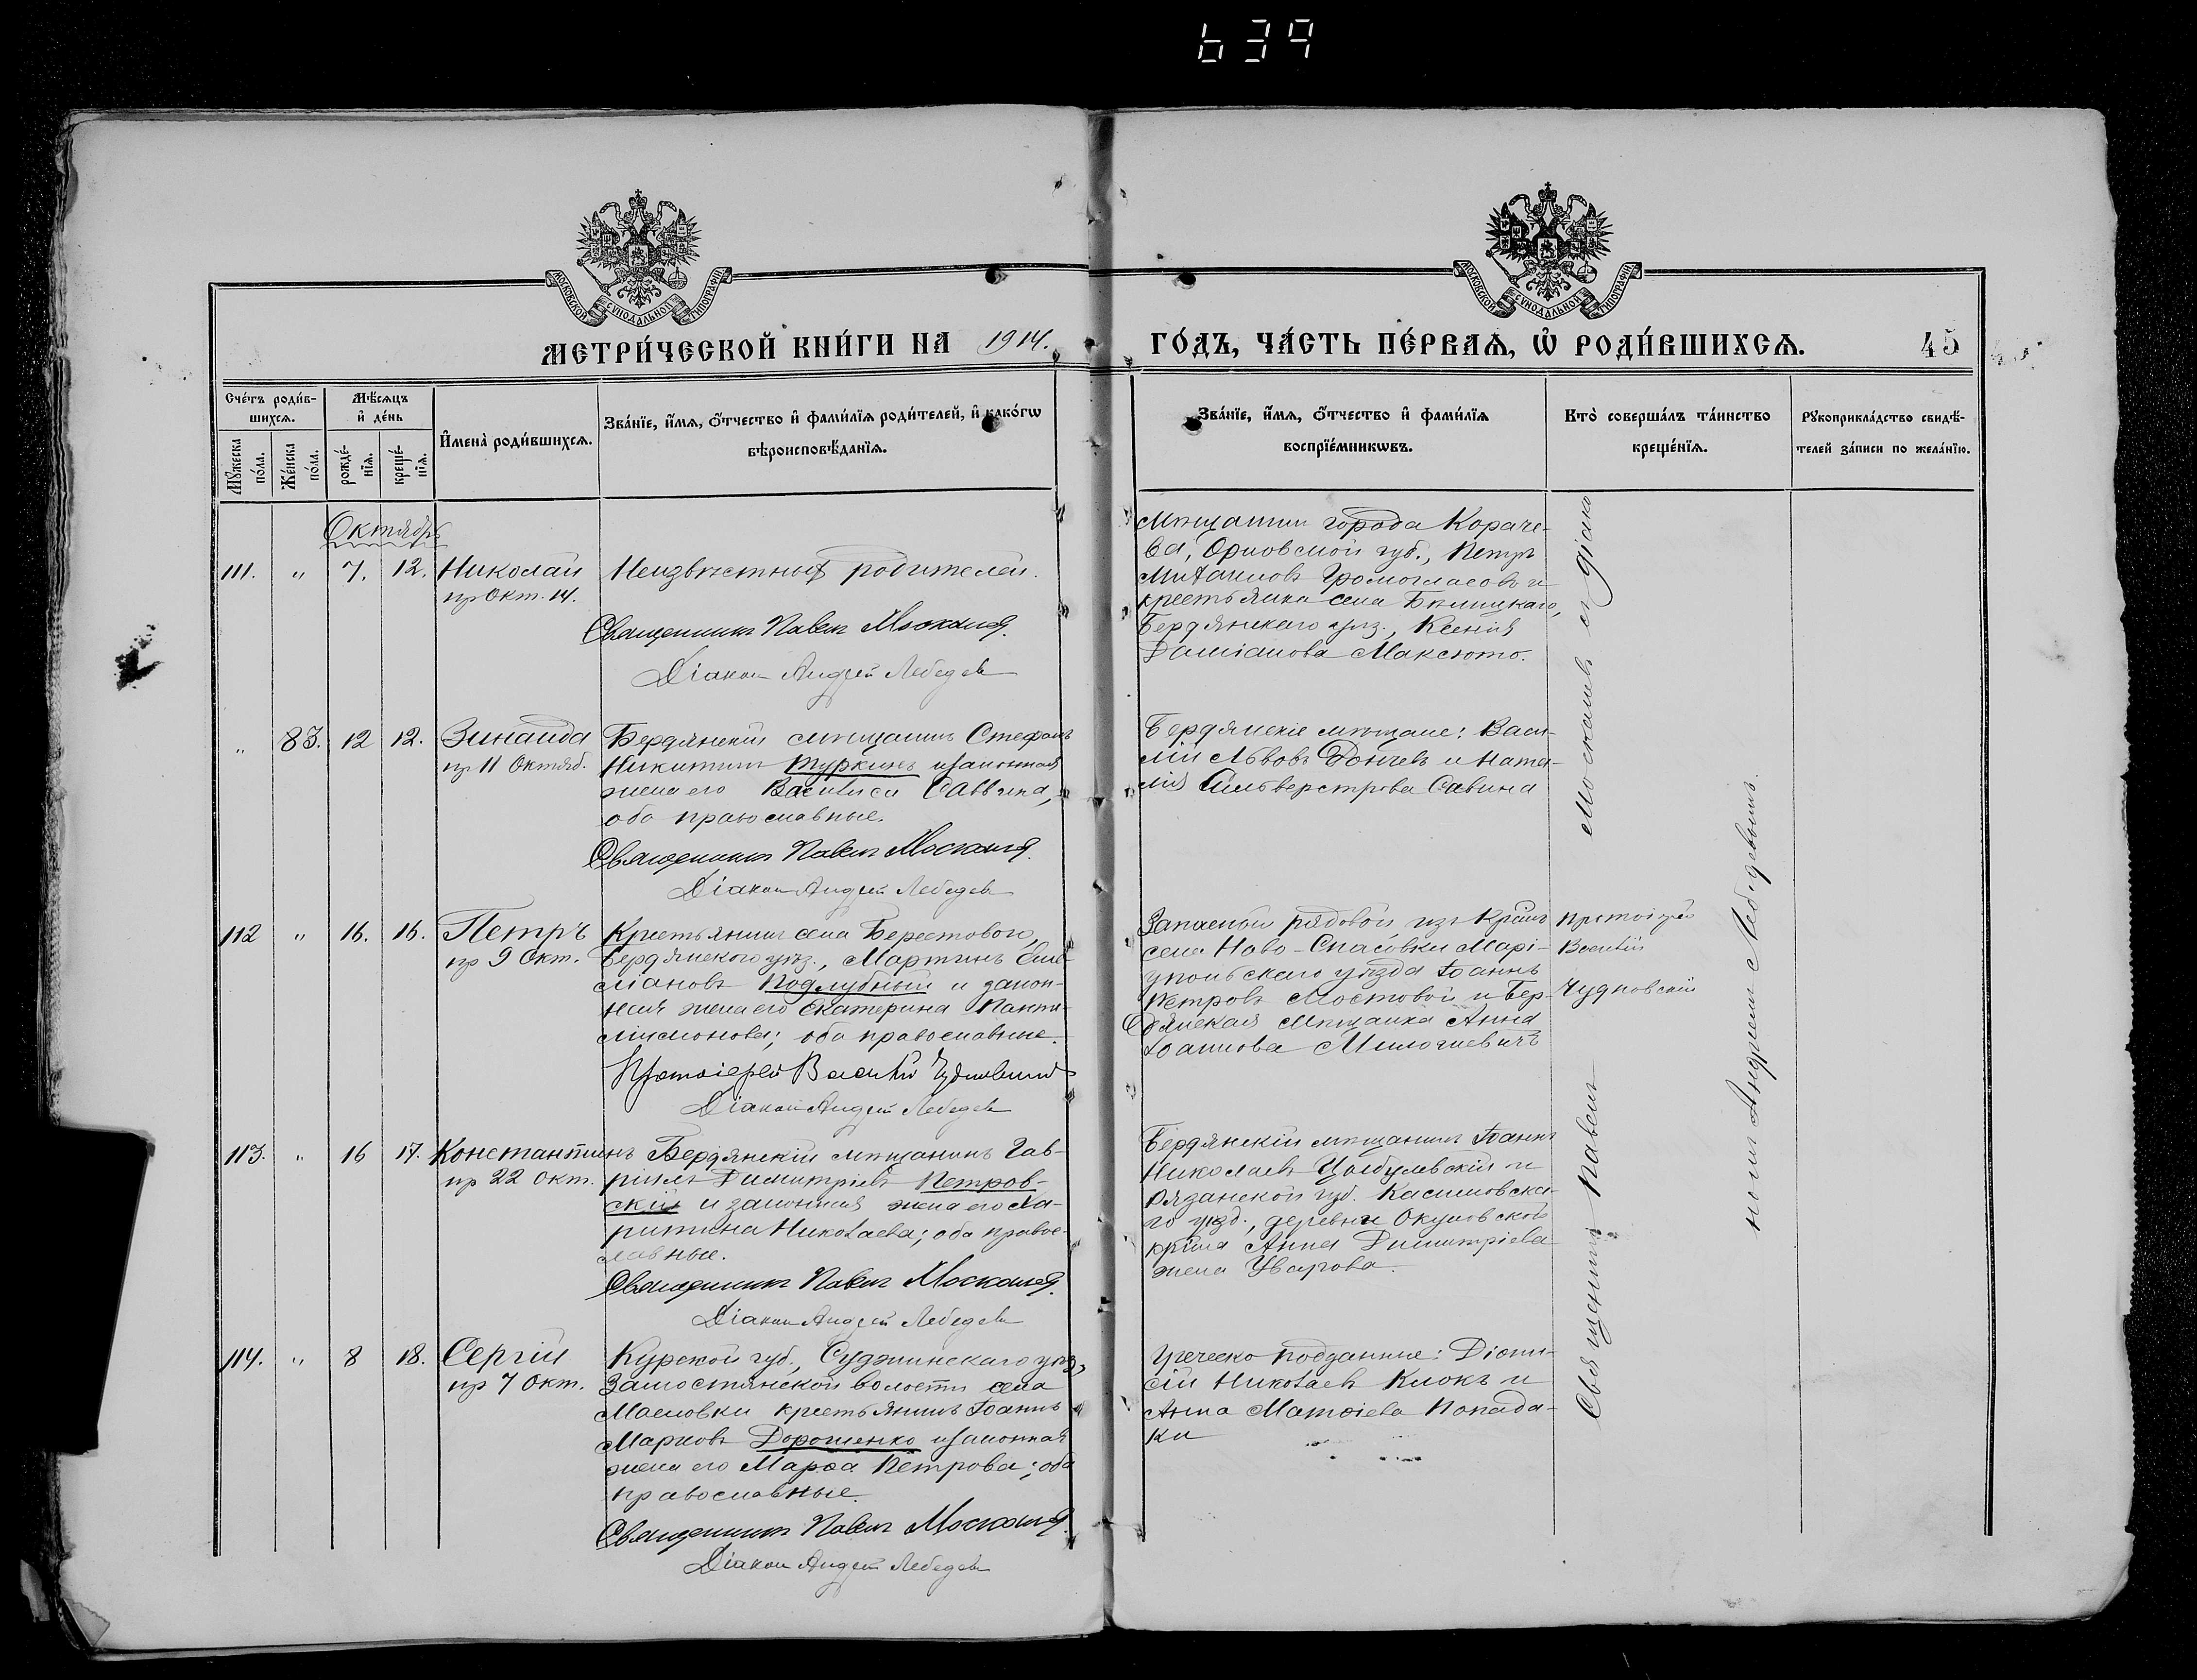 639
МОСКОВСКОЙ СУНОДАЛЬНОЙ ТИПОГРАФІИ
МОСКОВСКОЙ СУНОДАЛЬНОЙ ТИПОГРАФІИ
МЕТРИ́ЧЕСКОЙ КНИ́ГИ НА 1914.
ГО́ДЪ, ЧА́СТЬ ПЕ́РВАѦ, Ѡ҆ РОДИ́ВШИХСѦ.
45
Сче́тъ роди́в-
шихсѧ.
Мѣ́сѧцъ
и҆ де́нь
Мꙋ́жеска
по́ла.
Же́нска
по́ла.
рожде́-
нїѧ.
креще́-
нїѧ.
И҆мена̀ роди́вшихсѧ.
Зва́нїе, и҆́мѧ, ѻ҆́тчество и҆ фами́лїѧ роди́телей, и҆ како́гѡ
вѣроисповѣ́данїѧ.
Зва́нїе, и҆́мѧ, ѻ҆́тчество и҆ фами́лїѧ
воспрїе́мникѡвъ.
Кто̀ соверша́лъ та́инство
креще́нїѧ.
Рꙋкоприкла́дство свидѣ́-
телей за́писи по жела́нїю.
Октябрь
111. " 7. 12. Николай
пр Окт. 14.
Неизвѣстныхъ родителей.
Священникъ Павелъ Москалевъ.
Діаконъ Андрей Лебедевъ
Мѣщанинъ города Караче-
ва, Орловской губ., Петръ
Михаиловъ Громогласовъ и
крестьянка села
Бердянскаго уѣз., Ксенія
Даміанова Максюто.
" 83. 12 12. Зинаида
пр 11 Октяб.
Бердянскій мѣщанинъ Стефанъ
Никитинъ Туркинъ и законная
жена его Василиса Саввина,
оба православные.
Священникъ Павелъ Москалевъ.
Діаконъ Андрей Лебедевъ
Бердянскіе мѣщане: Васи-
лій Львовъ Дончевъ и Ната-
лія Сильверстрова Савина
112 " 16. 16. Петръ
пр 9 Окт.
Крестьянинъ села Берестового,
Бердянского уѣз., Мартинъ Еми-
ліановъ Подлубный и закон-
ная жена его Екатерина Панте-
лимонова; оба православные.
Протоіерей Василій Чудновскій
Діаконъ Андрей Лебедевъ
Запасный рядовой изъ крест
села Ново-Спасовки Марі-
упольскаго уѣзда Іоаннъ
Петровъ Мостовой и Бер-
дянская мѣщанка Анна
Іоаннова Милогиевичъ
Протоіерей
Василій
Чудновскій
113. " 16 17. Константинъ
пр 22 Окт.
Бердянскій мѣщанинъ Гав-
ріилъ Димитріевъ Петров-
скій и законная жена его Ха-
ритина Николаева; оба правос-
лавные.
Священникъ Павелъ Москалевъ.
Діаконъ Андрей Лебедевъ
Бердянскій мѣщанинъ Іоаннъ
Николаевъ Цыбулевскій и
Рязанской губ. Касимовска-
го уѣзд., деревни Окуловской
кр-на Анна Димитріева
жена Уварова.
114. " 8 18. Сергій
пр 7 Окт.
Курской губ., Суджинскаго уѣз,
Замостянской волости села
Масловки крестьянинъ Іоаннъ
Марковъ Дорошенко и законная
жена его Марѳа Петрова; оба
православные.
Священникъ Павелъ Москалевъ.
Діаконъ Андрей Лебедевъ
Греческо подданные: Діони-
сій Николаевъ Клокъ и
Анна Матѳіева Попада-
ки
Священникъ Павелъ Москалевъ съ діако
номъ Андреемъ Лебедевымъ.